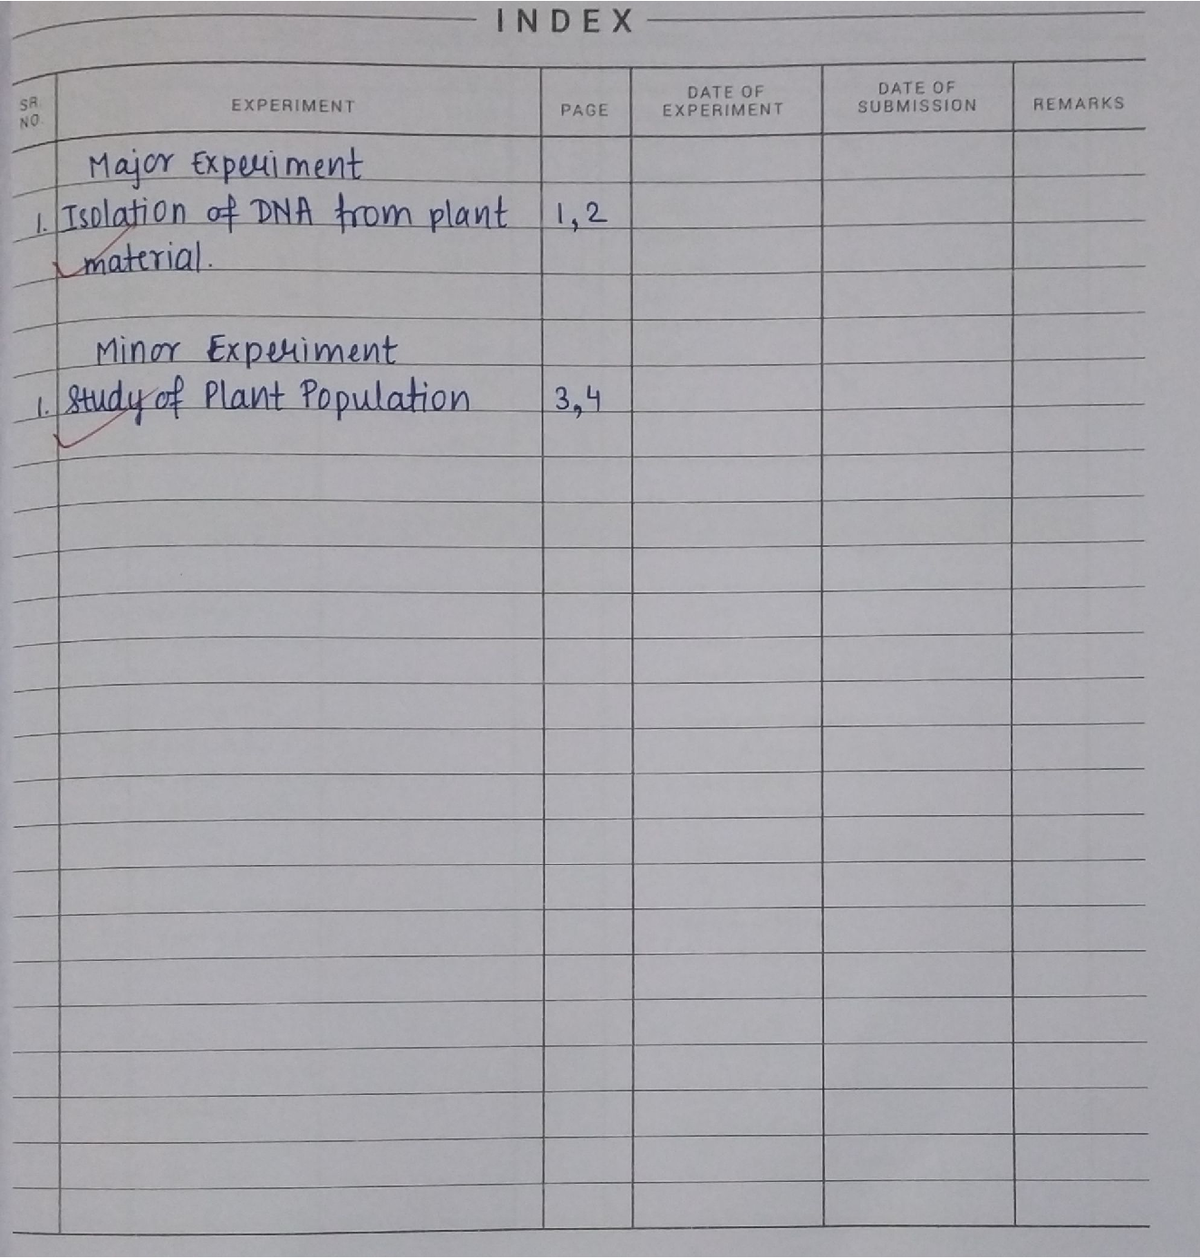 INDEX
SR. NO. EXPERIMENT PAGE DATE OF EXPERIMENT DATE OF SUBMISSION REMARKS
Major Experiment
1. Isolation of DNA from plant 1,2
material.
Minor Experiment
1. Study of Plant Population 3,4